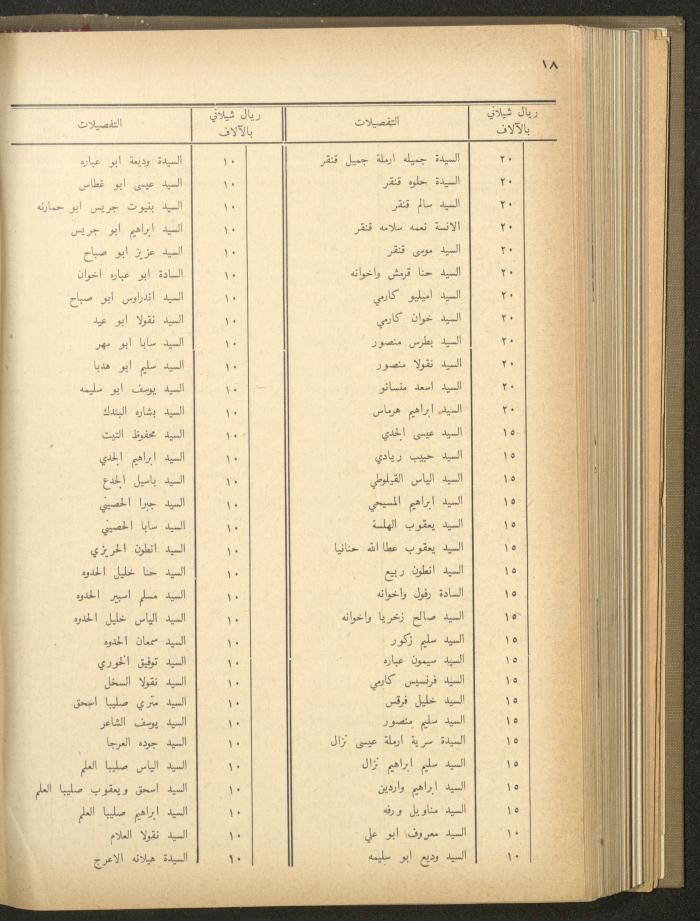 ١٨
ريال شيلاني بالآلاف التفصيلات
٢٠ السيدة جميله ارملة جميل قنقر
٢٠ السيدة حلوه قنقر
٢٠ السيد سالم قنقر
٢٠ الانسة نعمه سلامه قنقر
٢٠ السيد موسى قنقر
٢٠ السيد حنا قرمش واخوانه
٢٠ السيد اميليو كارمي
٢٠ السيد خوان كارمي
٢٠ السيد بطرس منصور
٢٠ السيد نقولا منصور
٢٠ السيد اسعد منسانو
٢٠ السيد ابراهيم هرماس
١٥ السيد عيسى الجدي
١٥ السيد حبيب ريادي
١٥ السيد الياس القيلوطي
١٥ السيد ابراهيم المسيحي
١٥ السيد يعقوب الهلسة
١٥ السيد يعقوب عطا الله حنانيا
١٥ السيد انطون ربيع
١٥ السادة رفول واخوانه
١٥ السيد صالح زخريا واخوانه
١٥ السيد سليم زكور
١٥ السيد سيمون عباره
١٥ السيد فرنسيس كارمي
١٥ السيد خليل فرقس
١٥ السيد سليم منصور
١٥ السيدة سرية ارملة عيسى نزال
١٥ السيد سليم ابراهيم نزال
١٥ السيد ابراهيم واردين
١٥ السيد مناويل ورفه
١٠ السيد معروف ابو علي
١٠ السيد وديع ابو سليمه
ريال شيلاني بالآلاف التفصيلات
١٠ السيدة وديعة ابو عباره
١٠ السيد عيسى ابو غطاس
١٠ السيد بنيوت جريس ابو حمارنه
١٠ السيد ابراهيم ابو جريس
١٠ السيد عزيز ابو صباح
١٠ السادة ابو عباره اخوان
١٠ السيد اندراوس ابو صباح
١٠ السيد نقولا ابو عيد
١٠ السيد سابا ابو مهر
١٠ السيد سليم ابو هدبا
١٠ السيد يوسف ابو سليمه
١٠ السيد بشاره البندك
١٠ السيد محفوظ التيت
١٠ السيد ابراهيم الجدي
١٠ السيد باسيل الجدع
١٠ السيد جبرا الحصيني
١٠ السيد سابا الحصيني
١٠ السيد انطون الحريزي
١٠ السيد حنا خليل الحدوه
١٠ السيد مسلم اسبير الحدوه
١٠ السيد الياس خليل الحدوه
١٠ السيد سمعان الحدوه
١٠ السيد توفيق الخوري
١٠ السيد نقولا السخل
١٠ السيد متري صليبا اسحق
١٠ السيد يوسف الشاعر
١٠ السيد جوده العرجا
١٠ السيد الياس صليبا العلم
١٠ السيد اسحق ويعقوب صليبا العلم
١٠ السيد ابراهيم صليبا العلم
١٠ السيد نقولا العلام
١٠ السيدة هيلانه الاعرج